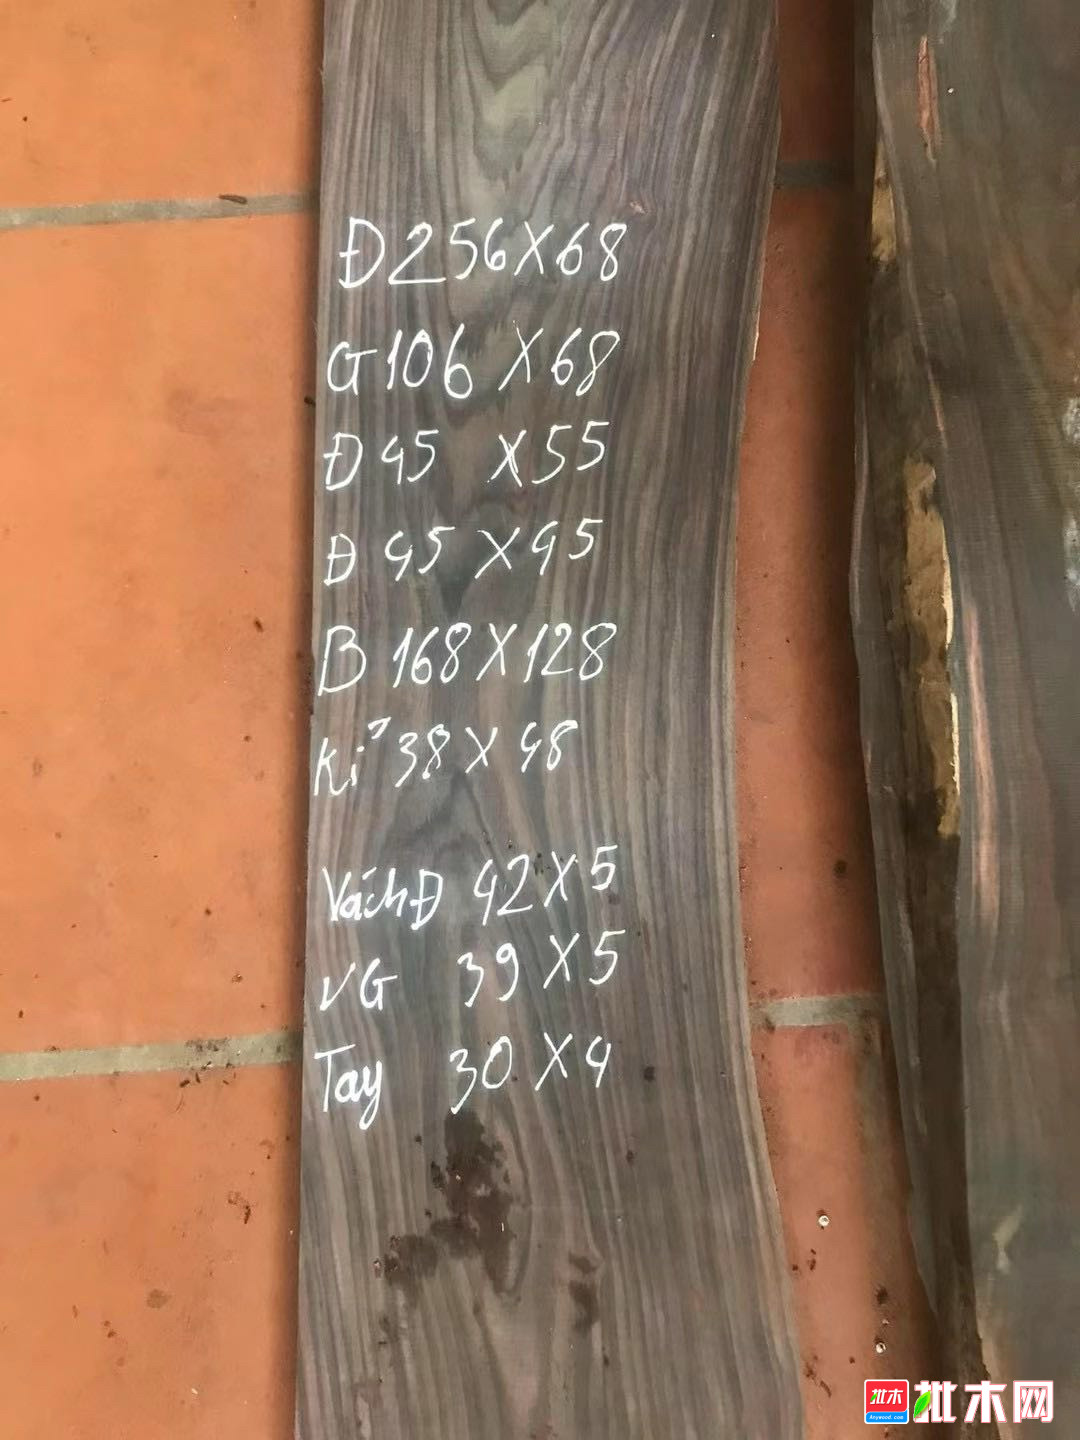 Đ256X68
G106 X68
Đ 45 X55
Đ 45 X45
B 168X128
Ki² 38X48
VáchĐ 42X5
VG 39X5
Tay 30X4
批木
Anywood.com
批木网